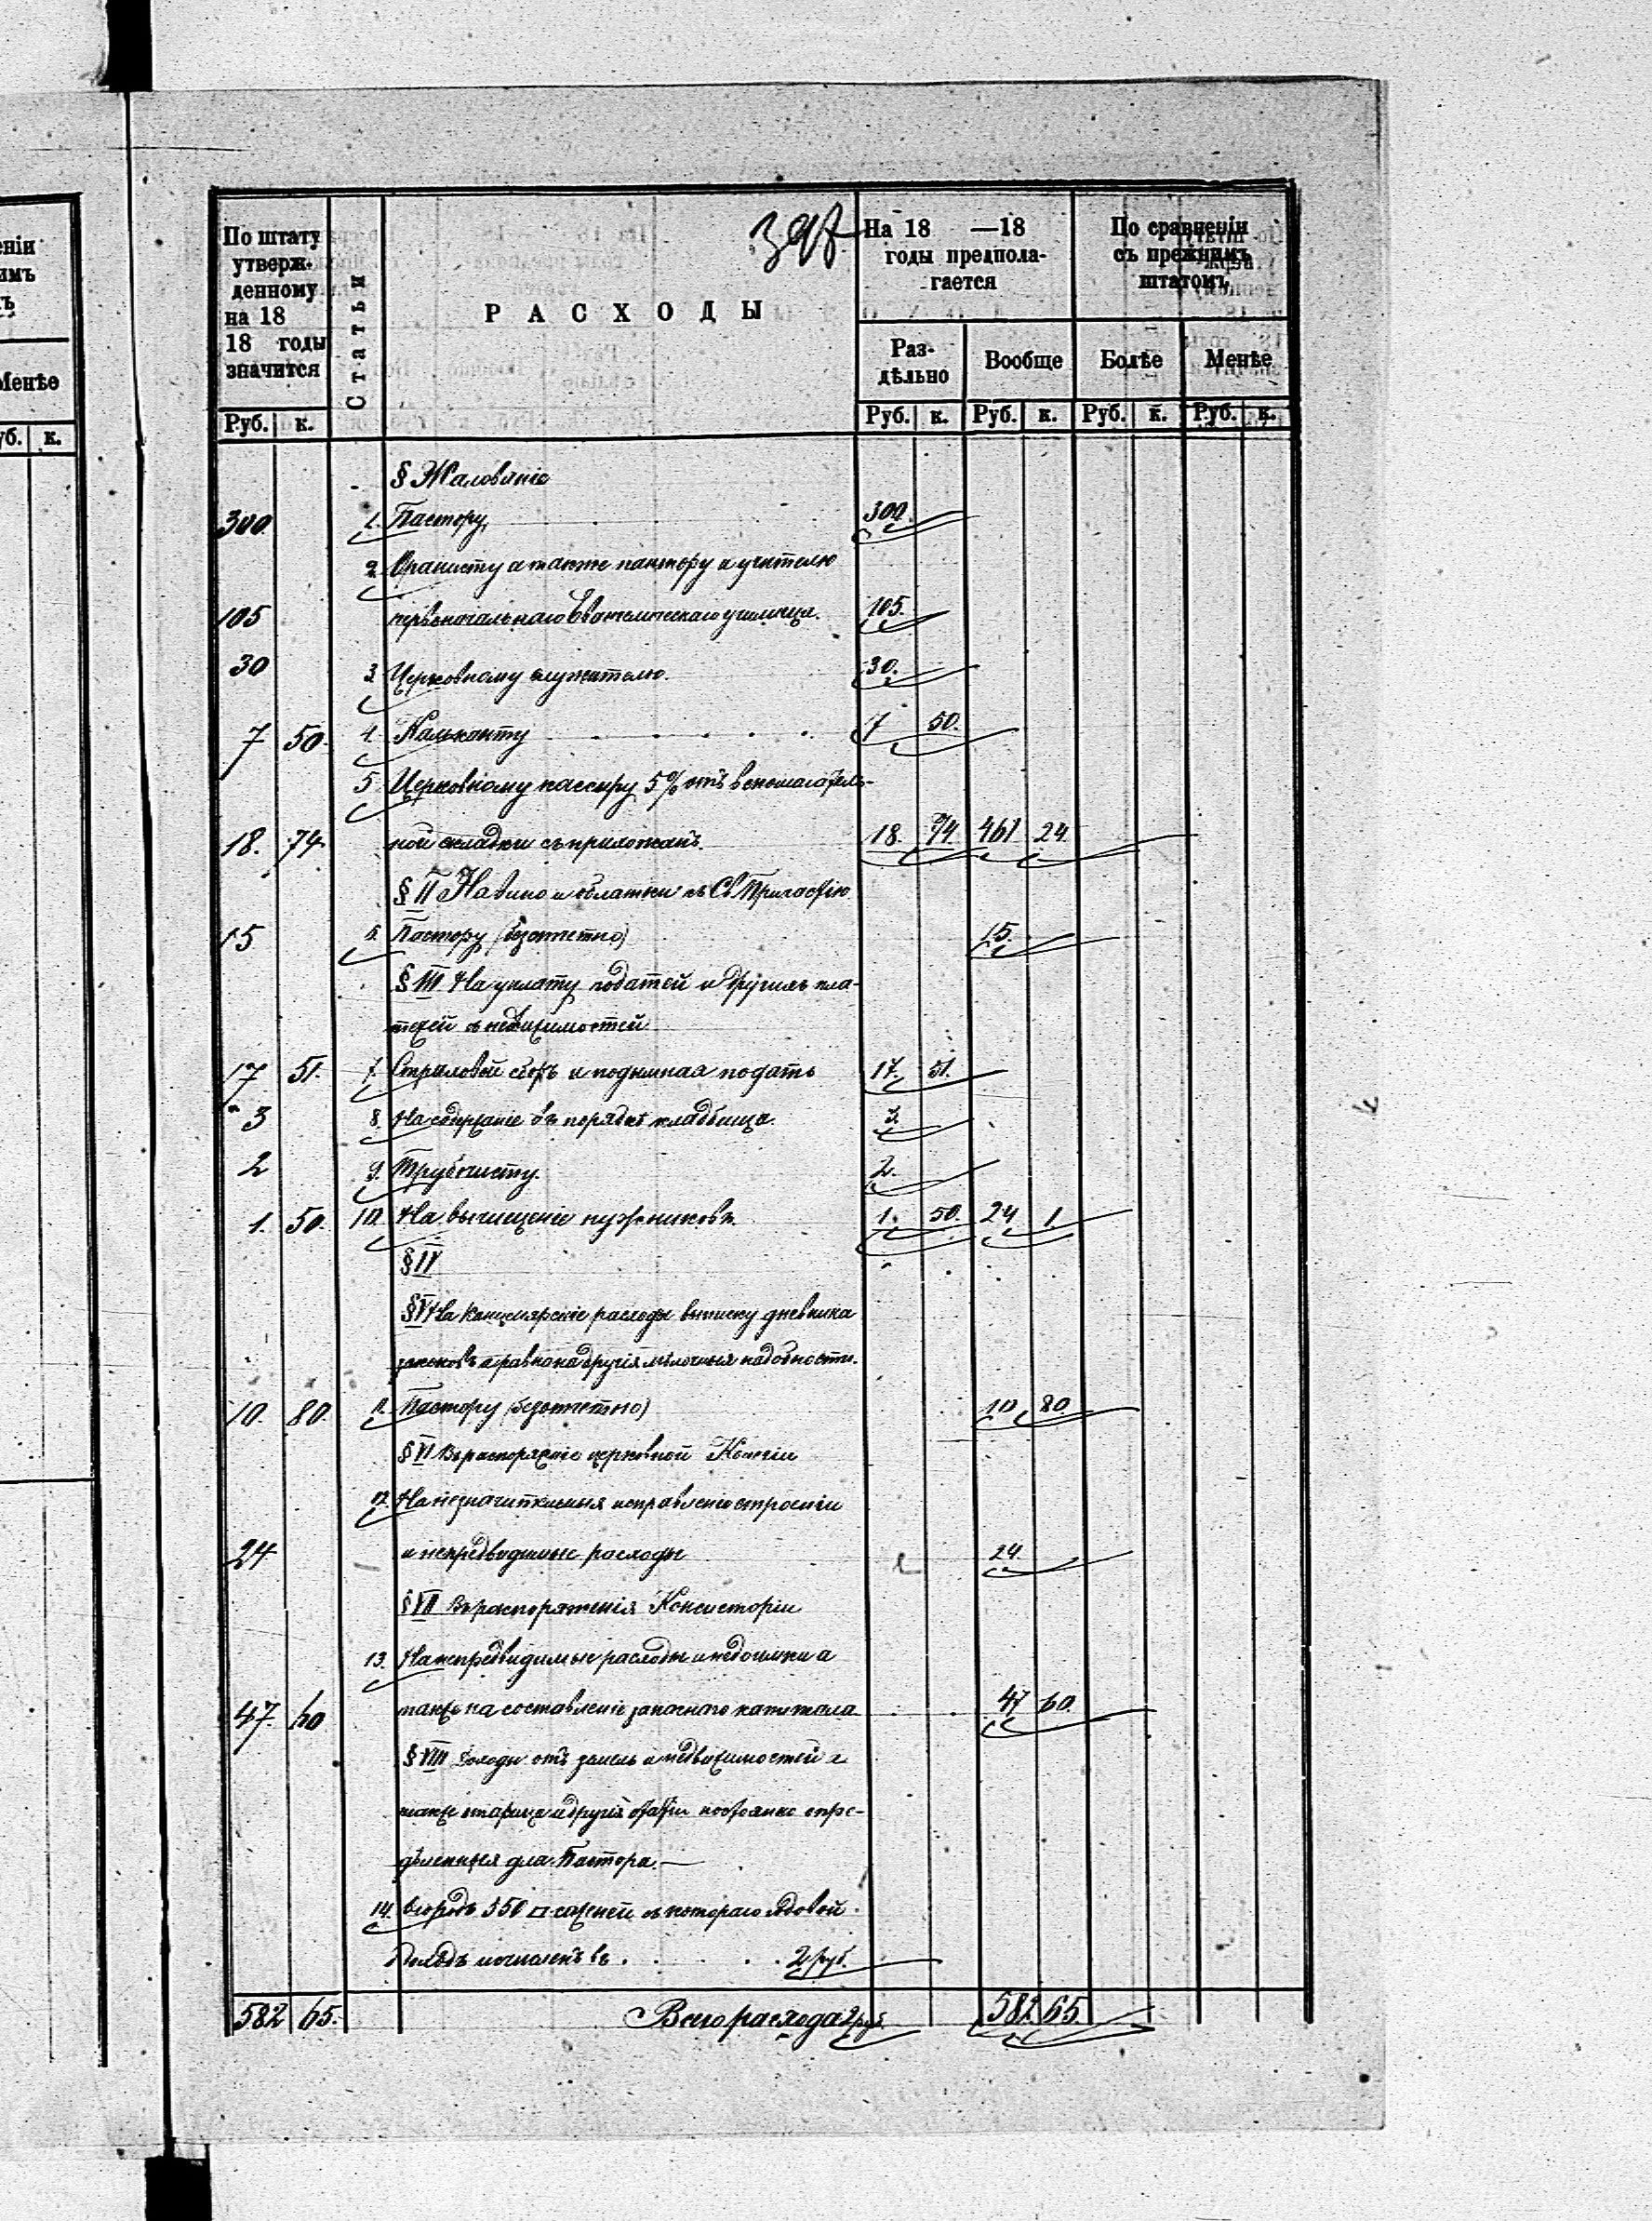 еніи
имъ
ъ
Менѣе
уб. к.
397
По штату утверж- денному на 18 18 годы значится
Статьи
РАСХОДЫ
На 18 —18 годы предпола- гается
По сравненіи съ прежнимъ штатомъ
Раз- дѣльно Вообще Болѣе Менѣе
Руб. к. Руб. к. Руб. к. Руб. к. Руб. к.
§ Жалованіе
300. 1. Пастору 300.
2. Органисту а также кантору и учителю
105 первоначальнаго Евангелическаго училища. 105.
30 3. Церковному служителю. 30.
7 50. 4. Кальканту . . . . . . 7 50.
5. Церковному кассиру 5% отъ вспомогатель-
18. 74 ной складки съ прихожанъ. 18. 74. 461 24
§ II На вино и облатки къ Св. Причастію
15 6. Пастору (безотчетно) 15.
§ III На уплату податей и другихъ пла-
тежей съ недвижимостей
17 51. 7. Страховой сборъ и подымная подать 17. 51.
3 8. На содержаніе въ порядкѣ кладбища. 3.
2 9. Трубочисту. 2.
1. 50. 10. На вычищеніе нужниковъ. 1. 50. 24 1.
§ IV
§ V На канцелярскіе расходы выписку дневника
законовъ а равно на другія мѣлочныя надобности.
10. 80. 11. Пастору (безотчетно) 10 80
§ VI Въ распоряженіе церковной Колегіи
12. На незначительныя исправленіе строеніи
24 и непредвидимые расходы 24.
§ VII Въ распоряженія Консисторіи
13. На непредвидимые расходы и недоимки а
47. 60 также на составленіе запаснаго капитала 47 60.
§ VIII Доходы отъ земель и недвижимостей а
также и другія постоянно опре-
дѣленныя для Пастора.—
14. Огородъ 350 □ саженей съ котораго годовой
Доходъ исчисленъ въ . . . . . 2 руб.
582 65. Всего расхода 2 руб. 582 65.